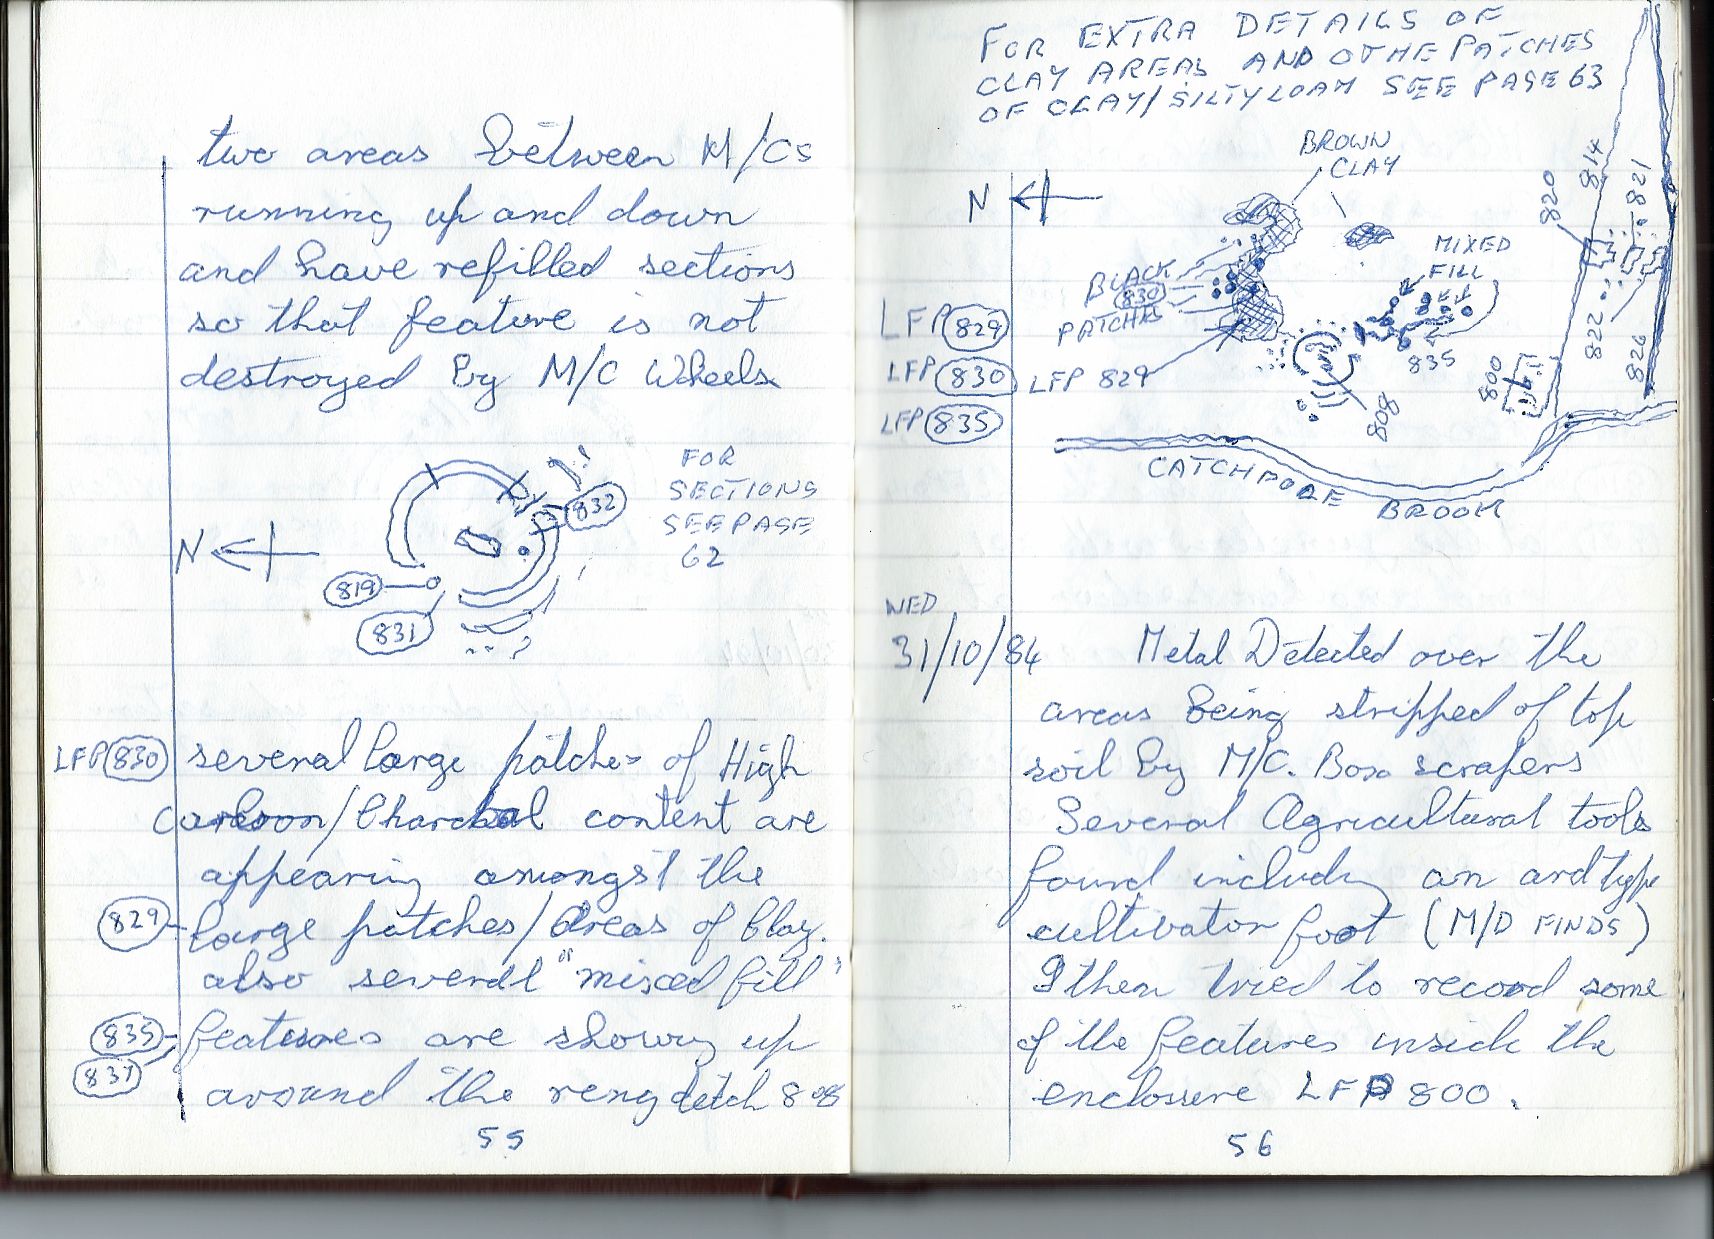 two areas between M/Cs
running up and down
and have refilled sections
so that feature is not
destroyed by M/C Wheels
FOR
SECTIONS
SEE PAGE
62
832
N
819
831
LFP 830 several large patches of High
Carbon/Charcoal content are
appearing amongst the
829 large patches/Areas of Clay.
also several "mixed fill"
835 features are showing up
837
around the ring ditch 808
55
FOR EXTRA DETAILS OF
CLAY AREAS AND OTHE PATCHES
OF CLAY/SILTY LOAM SEE PAGE 63
BROWN
CLAY
N
820
814
821
MIXED
FILL
BLACK
830
PATCHES
LFP 829
LFP 830
LFP 835
LFP 829
835
808
800
822
826
CATCHPOLE BROOK
WED
31/10/84 Metal Detected over the
areas being stripped of top
soil by M/C. Box scrapers
Several Agricultural tools
found including an ard type
cultivator foot (M/D FINDS)
I then tried to record some
of the features inside the
enclosure LFP 800.
56